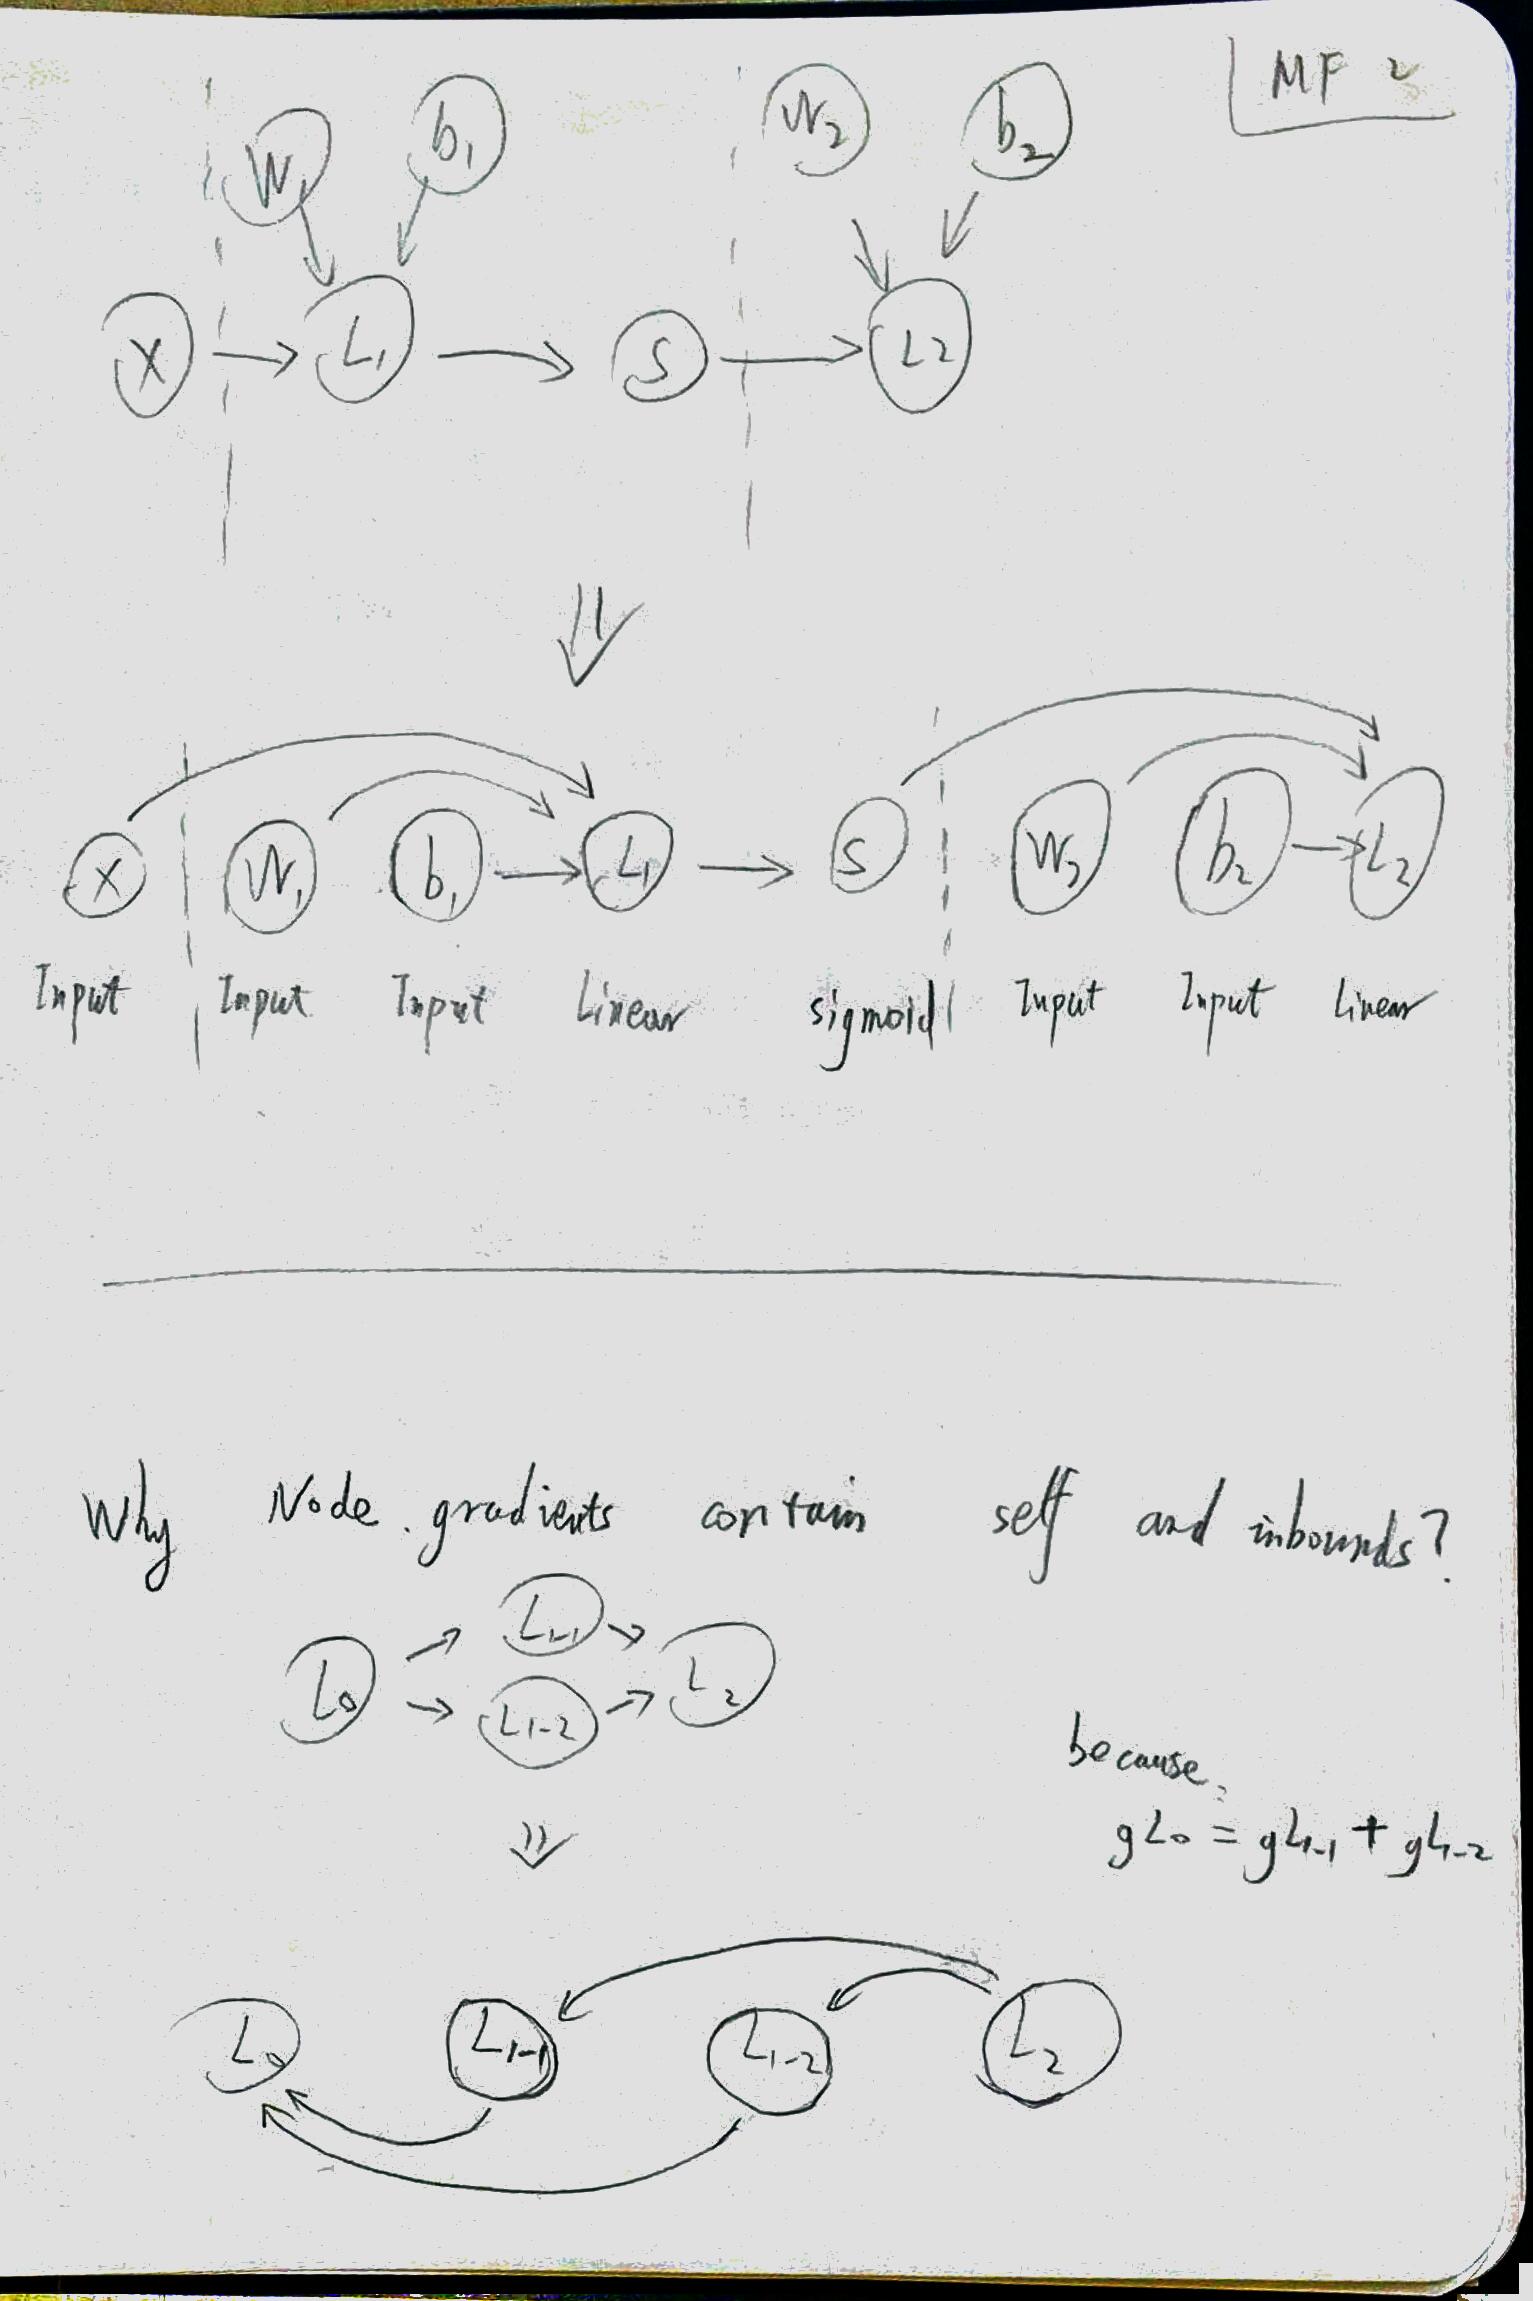 MF 2
W1 b1 W2 b2
X L1 S L2
X W1 b1 L1 S W2 b2 L2
Input Input Input Linear sigmoid Input Input Linear
Why Node.gradients contain self and inbounds?
L1-1
L0 L2
L1-2
because,
gL0 = gL1-1 + gL1-2
L0 L1-1 L1-2 L2